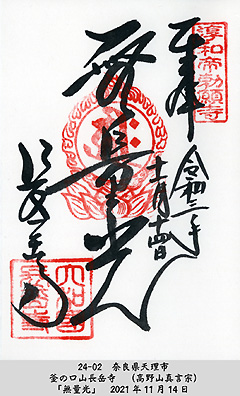 淳和帝勅願寺
奉拝
令和三年
十一月十四日
無量光
長岳寺
24-02 奈良県天理市
釜の口山長岳寺 (高野山真言宗)
「無量光」 2021年11月14日